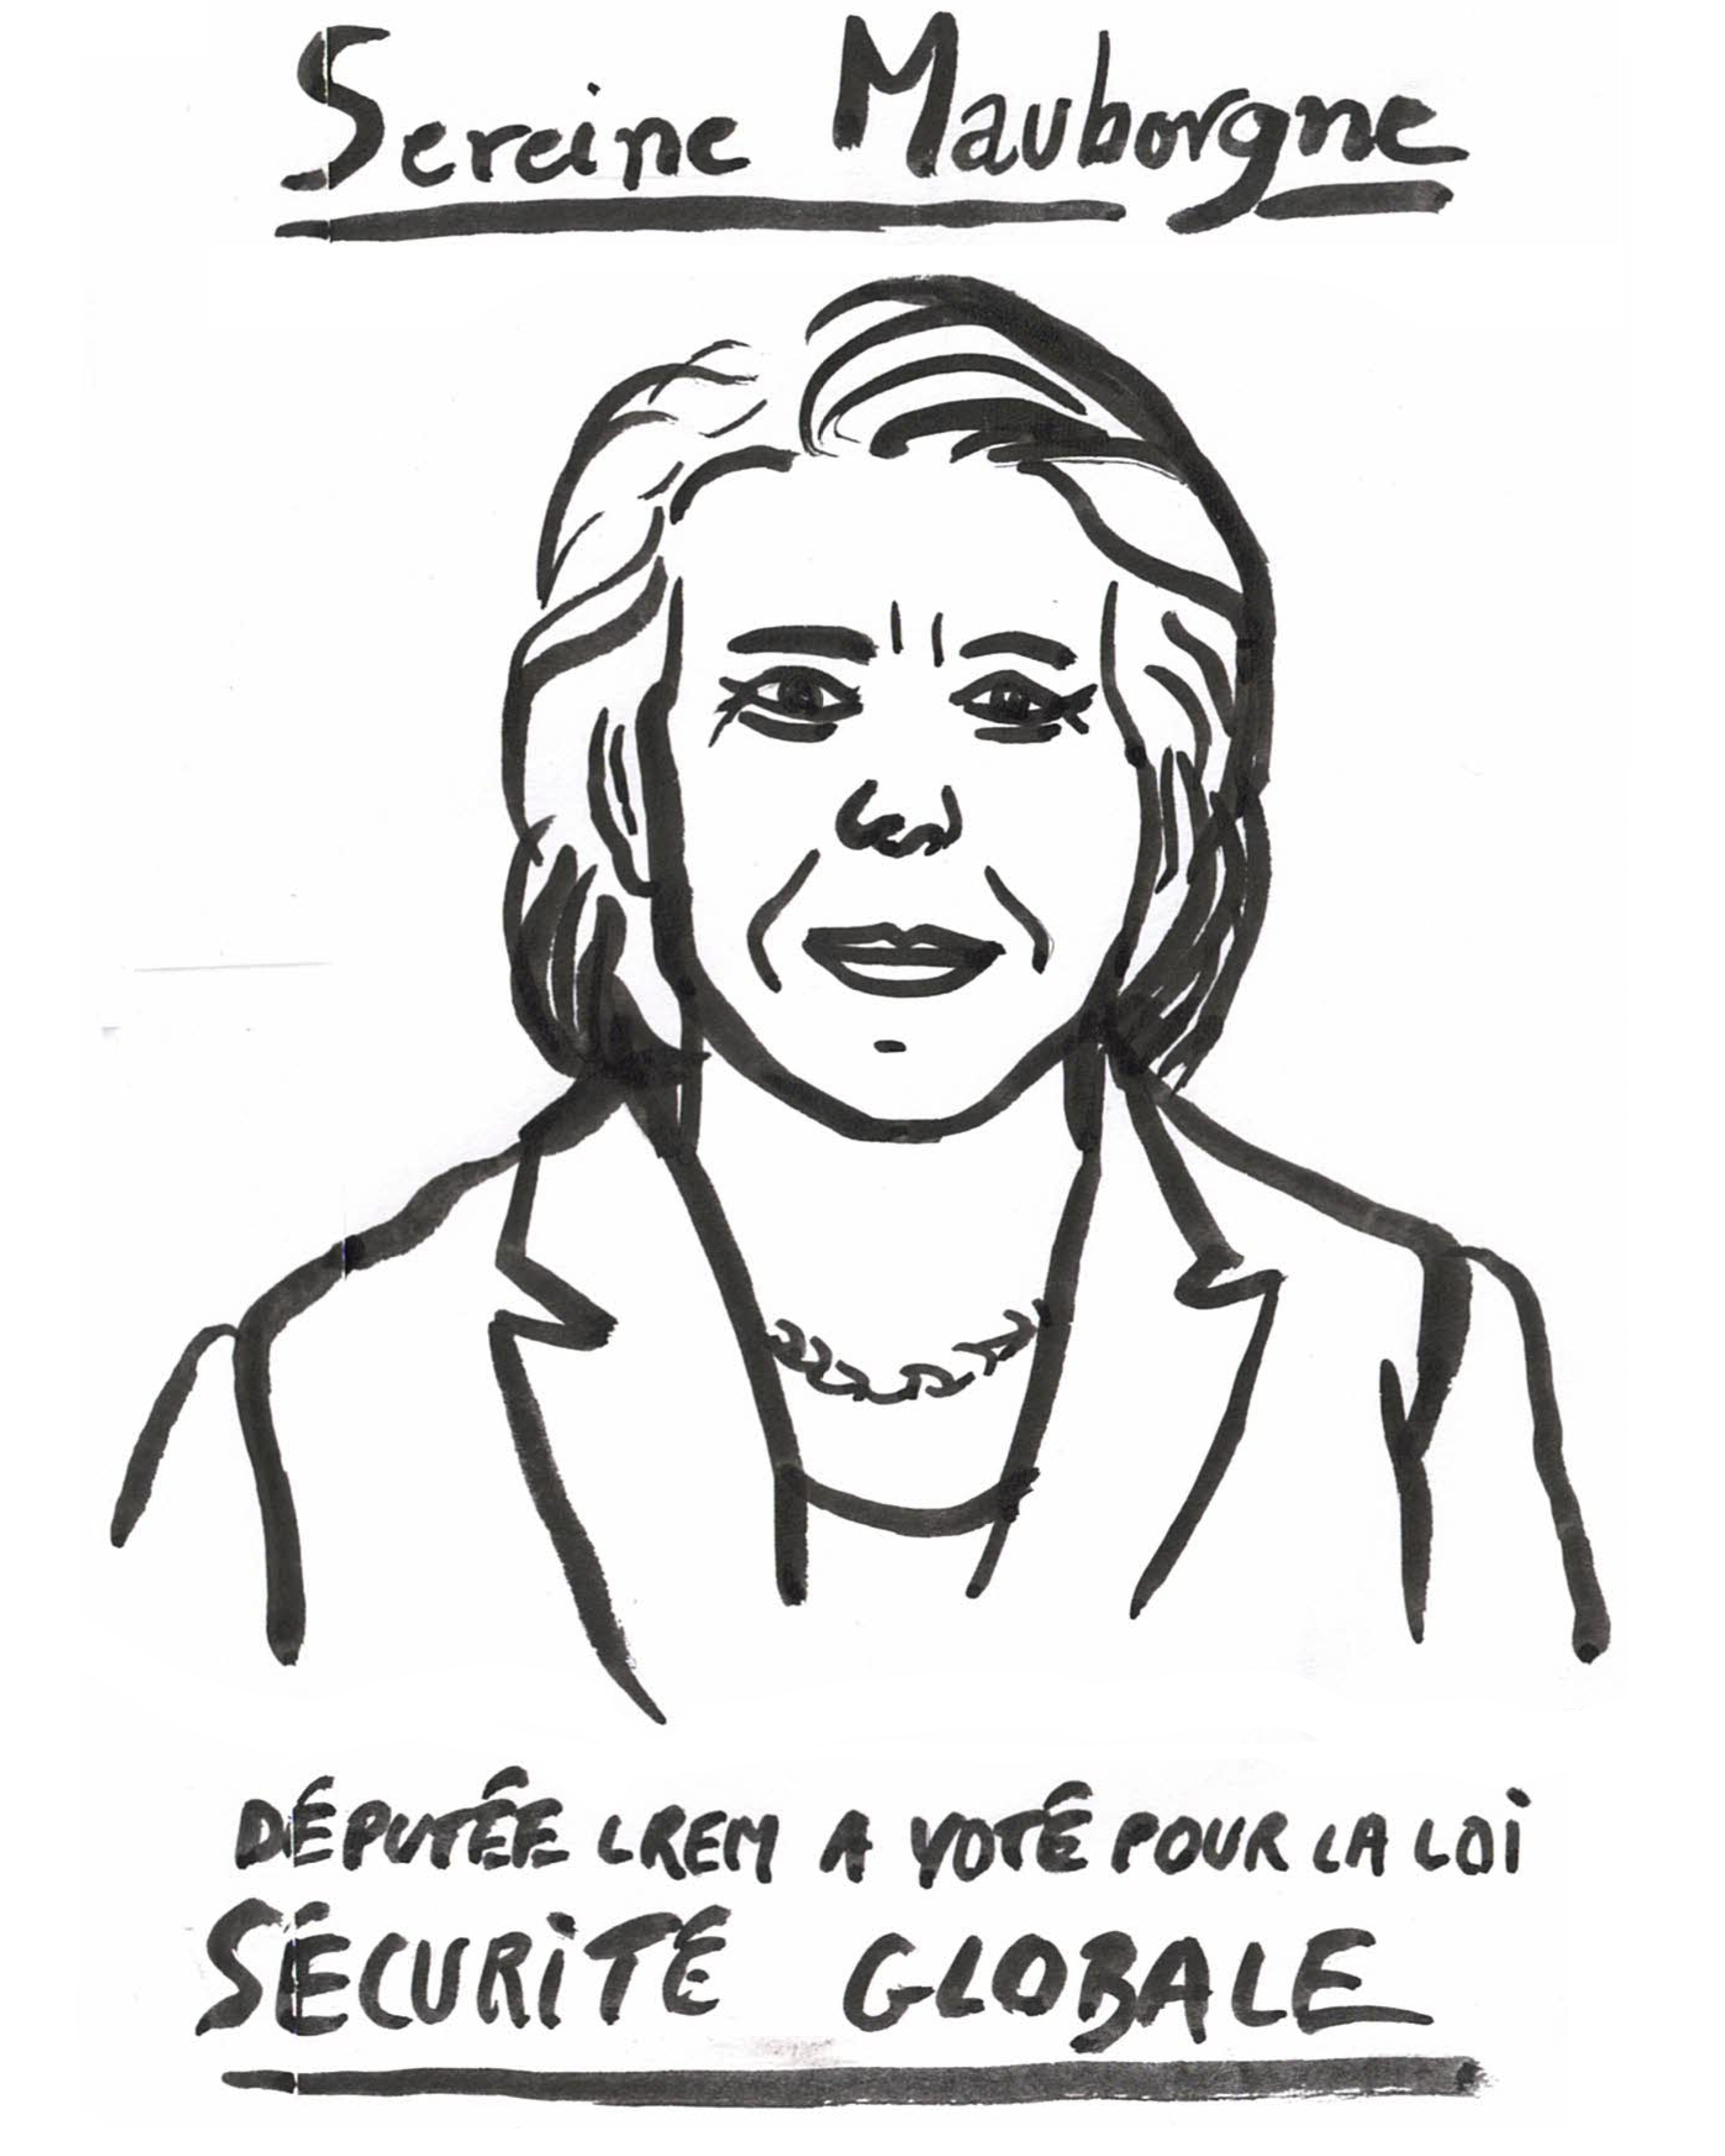 Sereine Mauborgne
DÉPUTÉE LREM A VOTÉ POUR LA LOi
SÉCURiTÉ GLOBALE